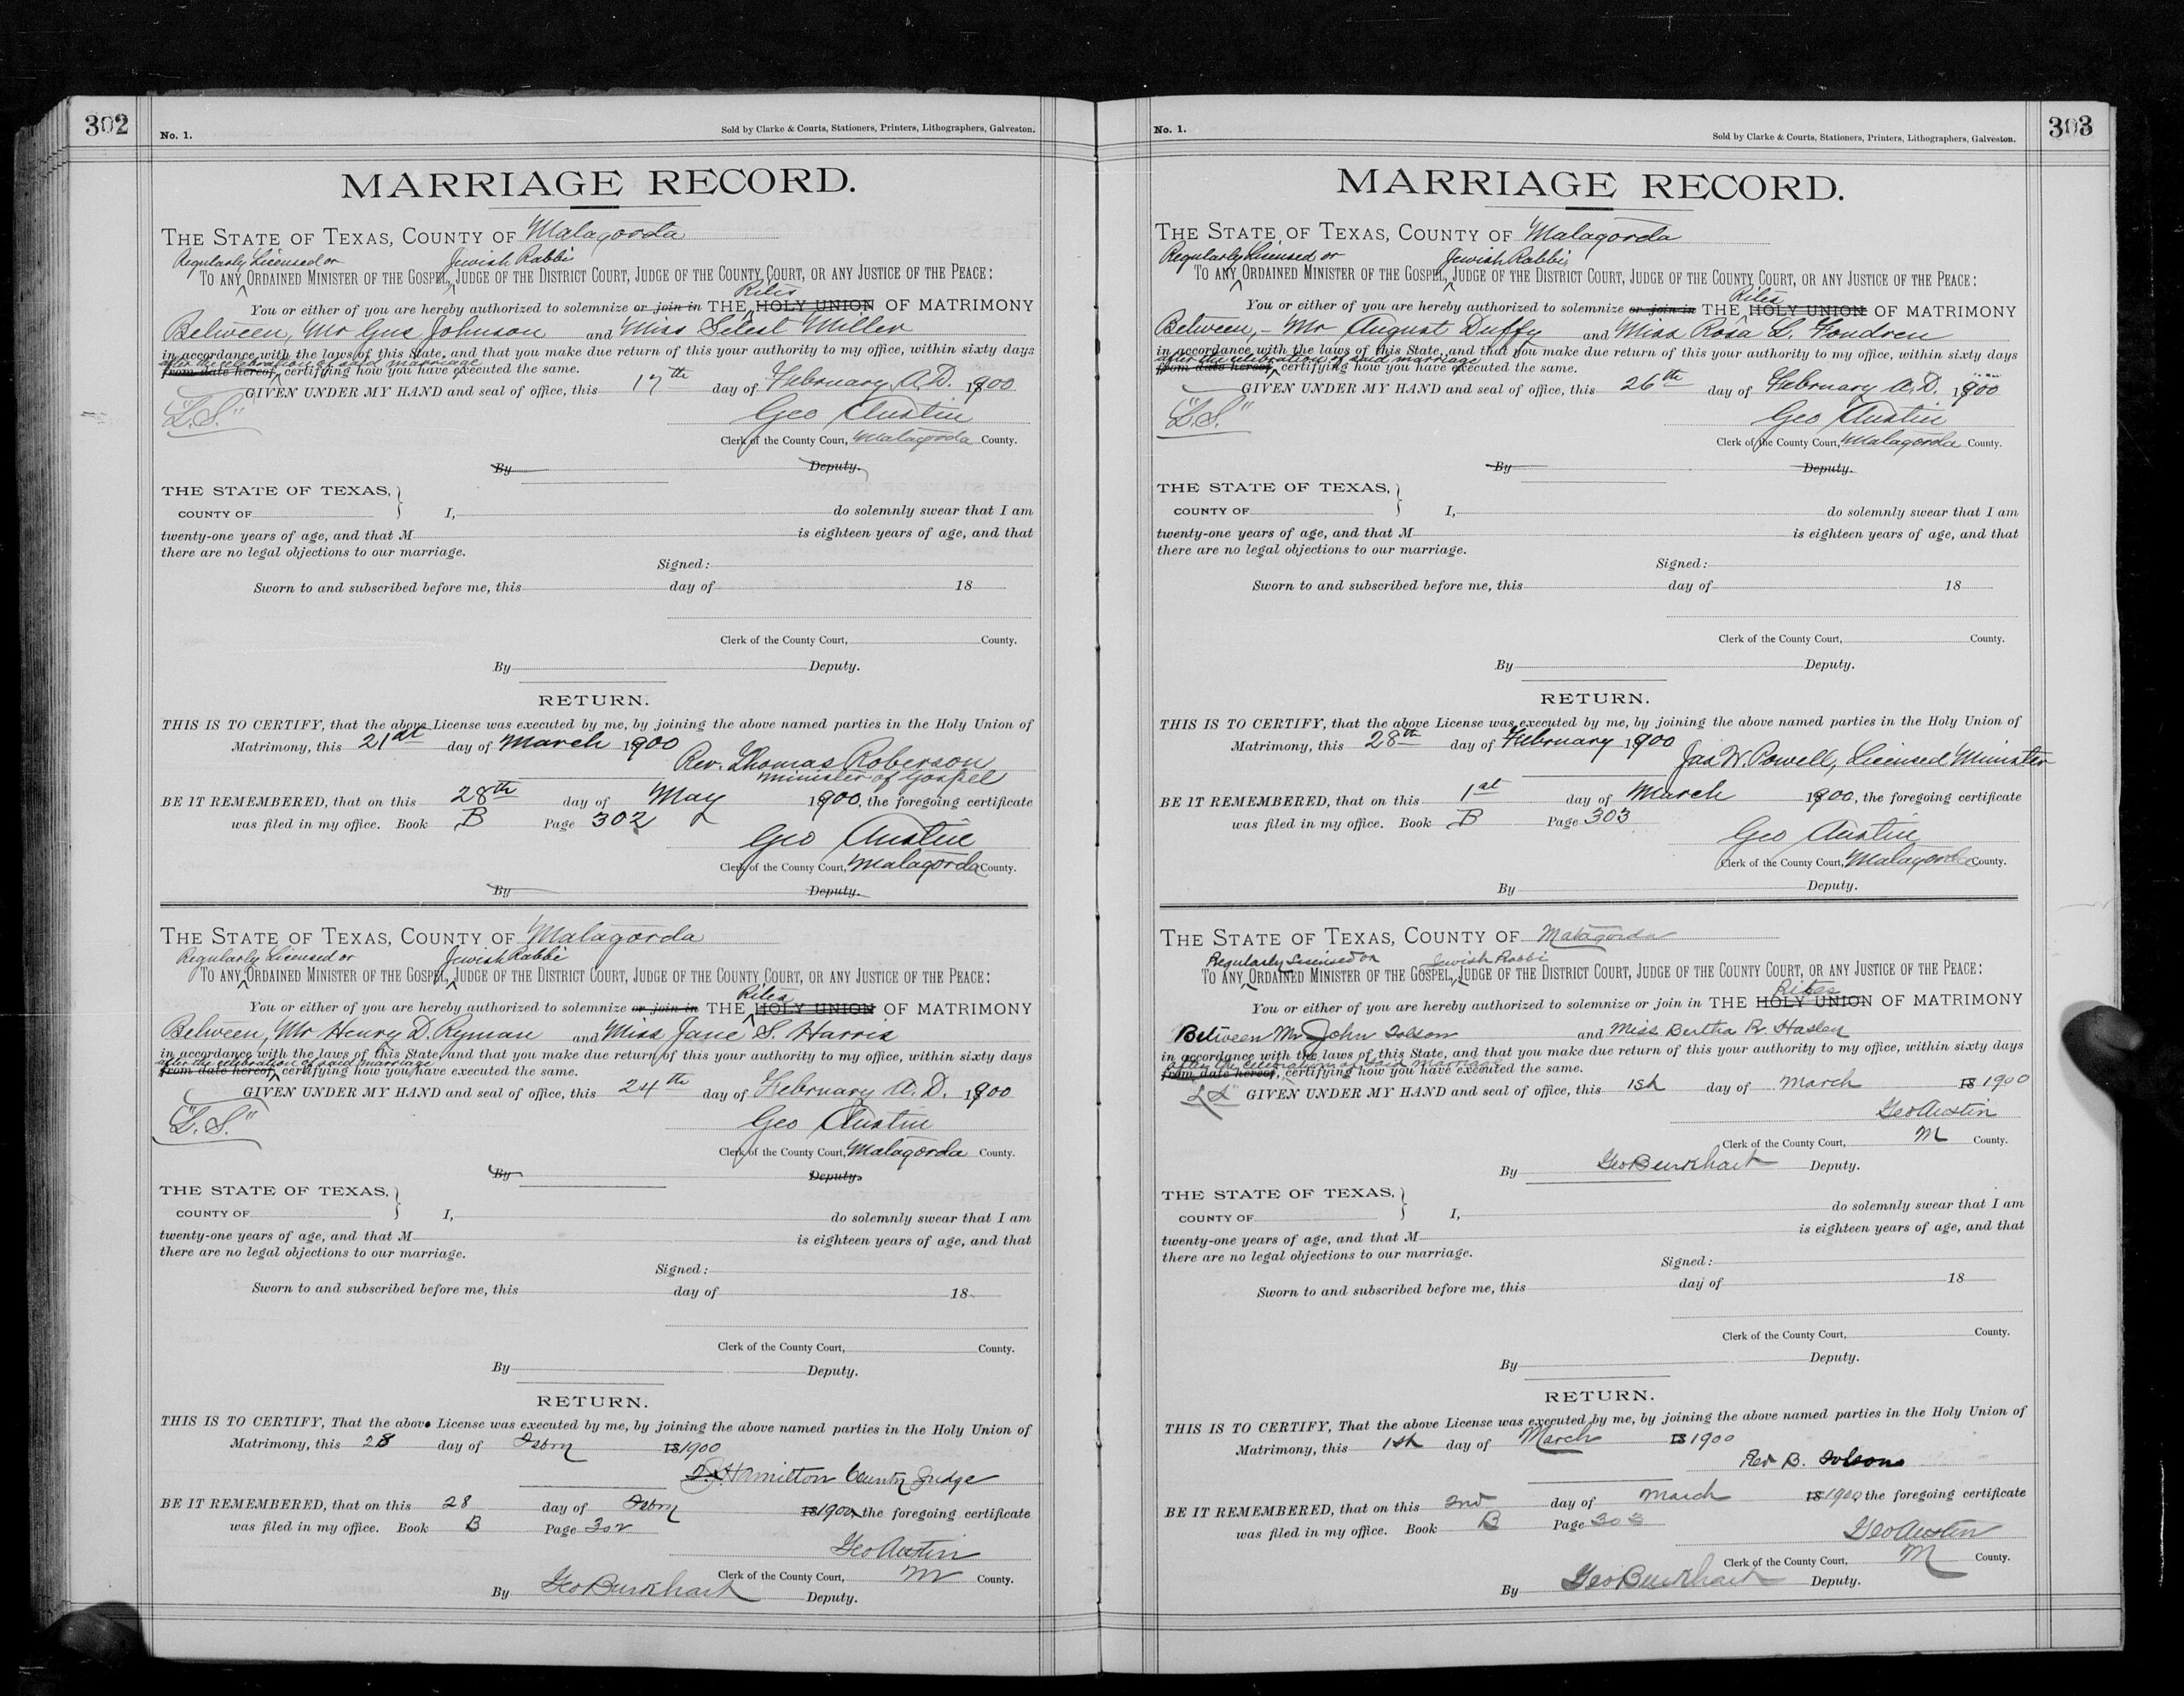 302
No. 1.
Sold by Clarke & Courts, Stationers, Printers, Lithographers, Galveston.
MARRIAGE RECORD.
THE STATE OF TEXAS, COUNTY OF Matagorda
Regularly Licensed or Jewish Rabbi
TO ANY ORDAINED MINISTER OF THE GOSPEL, JUDGE OF THE DISTRICT COURT, JUDGE OF THE COUNTY COURT, OR ANY JUSTICE OF THE PEACE:
Rites
You or either of you are hereby authorized to solemnize or join in THE HOLY UNION OF MATRIMONY
Between, Mr Gus Johnson and Miss Selest Miller
in accordance with the laws of this State, and that you make due return of this your authority to my office, within sixty days
after the celebration of said marriage
from date hereof, certifying how you have executed the same.
GIVEN UNDER MY HAND and seal of office, this 17th day of February A.D. 1900
"L.S."
Geo Austin
Clerk of the County Court, Matagorda County.
By Deputy.
THE STATE OF TEXAS,
COUNTY OF I, do solemnly swear that I am
twenty-one years of age, and that M is eighteen years of age, and that
there are no legal objections to our marriage.
Signed:
Sworn to and subscribed before me, this day of 18
Clerk of the County Court, County.
By Deputy.
RETURN.
THIS IS TO CERTIFY, that the above License was executed by me, by joining the above named parties in the Holy Union of
Matrimony, this 21st day of March 1900
Rev. Thomas Roberson
Minister of Gospel
BE IT REMEMBERED, that on this 28th day of May 1900, the foregoing certificate
was filed in my office. Book B Page 302
Geo Austin
Clerk of the County Court, Matagorda County.
By Deputy.
THE STATE OF TEXAS, COUNTY OF Matagorda
Regularly Licensed or Jewish Rabbi
TO ANY ORDAINED MINISTER OF THE GOSPEL, JUDGE OF THE DISTRICT COURT, JUDGE OF THE COUNTY COURT, OR ANY JUSTICE OF THE PEACE:
Rites
You or either of you are hereby authorized to solemnize or join in THE HOLY UNION OF MATRIMONY
Between, Mr Henry D. Ryman and Miss Jane S. Harris
in accordance with the laws of this State and that you make due return of this your authority to my office, within sixty days
after the celebration of said marriage
from date hereof, certifying how you have executed the same.
GIVEN UNDER MY HAND and seal of office, this 24th day of February A.D. 1900
"L.S."
Geo Austin
Clerk of the County Court, Matagorda County.
By Deputy.
THE STATE OF TEXAS,
COUNTY OF I, do solemnly swear that I am
twenty-one years of age, and that M is eighteen years of age, and that
there are no legal objections to our marriage.
Signed:
Sworn to and subscribed before me, this day of 18
Clerk of the County Court, County.
By Deputy.
RETURN.
THIS IS TO CERTIFY, That the above License was executed by me, by joining the above named parties in the Holy Union of
Matrimony, this 28 day of Febry 18 1900
Hamilton County Judge
BE IT REMEMBERED, that on this 28 day of Febry 18 1900, the foregoing certificate
was filed in my office. Book B Page 302
Geo Austin
Clerk of the County Court, M County.
By Geo Burkhart Deputy.
303
No. 1.
Sold by Clarke & Courts, Stationers, Printers, Lithographers, Galveston.
MARRIAGE RECORD.
THE STATE OF TEXAS, COUNTY OF Matagorda
Regularly Licensed or Jewish Rabbi
TO ANY ORDAINED MINISTER OF THE GOSPEL, JUDGE OF THE DISTRICT COURT, JUDGE OF THE COUNTY COURT, OR ANY JUSTICE OF THE PEACE:
Rites
You or either of you are hereby authorized to solemnize or join in THE HOLY UNION OF MATRIMONY
Between,- Mr August Duffy and Miss Rosa L. Fondren
in accordance with the laws of this State, and that you make due return of this your authority to my office, within sixty days
after the celebration of said marriage
from date hereof, certifying how you have executed the same.
GIVEN UNDER MY HAND and seal of office, this 26th day of February A.D. 1900
"L.S."
Geo Austin
Clerk of the County Court, Matagorda County.
By Deputy.
THE STATE OF TEXAS,
COUNTY OF I, do solemnly swear that I am
twenty-one years of age, and that M is eighteen years of age, and that
there are no legal objections to our marriage.
Signed:
Sworn to and subscribed before me, this day of 18
Clerk of the County Court, County.
By Deputy.
RETURN.
THIS IS TO CERTIFY, that the above License was executed by me, by joining the above named parties in the Holy Union of
Matrimony, this 28th day of February 1900
Jas W. Powell, Licensed Minister
BE IT REMEMBERED, that on this 1st day of March 1900, the foregoing certificate
was filed in my office. Book B Page 303
Geo Austin
Clerk of the County Court, Matagorda County.
By Deputy.
THE STATE OF TEXAS, COUNTY OF Matagorda
Regularly Licensed or Jewish Rabbi
TO ANY ORDAINED MINISTER OF THE GOSPEL, JUDGE OF THE DISTRICT COURT, JUDGE OF THE COUNTY COURT, OR ANY JUSTICE OF THE PEACE:
Rites
You or either of you are hereby authorized to solemnize or join in THE HOLY UNION OF MATRIMONY
Between Mr John Tolson and Miss Bertha R. Haslen
in accordance with the laws of this State, and that you make due return of this your authority to my office, within sixty days
after the celebration of said marriage
from date hereof, certifying how you have executed the same.
"L S" GIVEN UNDER MY HAND and seal of office, this 1st day of March 18 1900
Geo Austin
Clerk of the County Court, M County.
By Geo Burkhart Deputy.
THE STATE OF TEXAS,
COUNTY OF I, do solemnly swear that I am
twenty-one years of age, and that M is eighteen years of age, and that
there are no legal objections to our marriage.
Signed:
Sworn to and subscribed before me, this day of 18
Clerk of the County Court, County.
By Deputy.
RETURN.
THIS IS TO CERTIFY, That the above License was executed by me, by joining the above named parties in the Holy Union of
Matrimony, this 1st day of March 18 1900
Rev B. Tolson
BE IT REMEMBERED, that on this 2nd day of March 18 1900, the foregoing certificate
was filed in my office. Book B Page 303
Geo Austin
Clerk of the County Court, M County.
By Geo Burkhart Deputy.